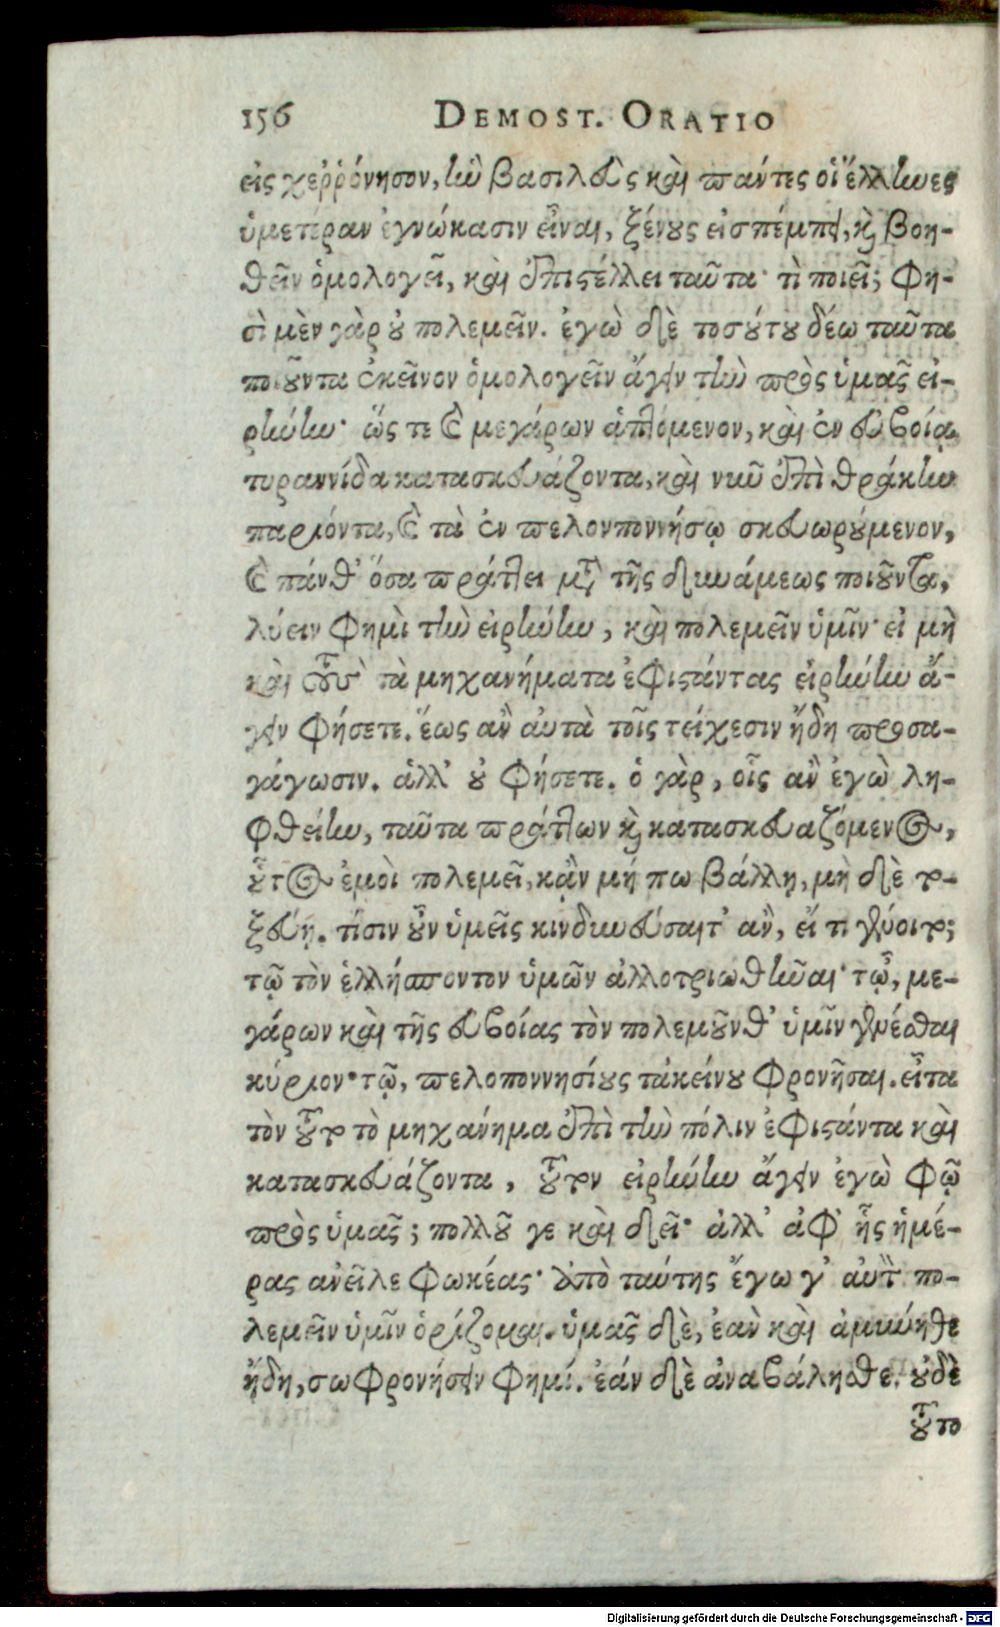 156 DEMOST. ORATIO
εἰς χεῤῥόνησον, ἣν βασιλεὺς καὶ πάντες οἱ ἕλληνες
ὑμετέραν ἐγνώκασιν εἶναι, ξένους εἰσπέμπει, καὶ βοη-
θεῖν ὁμολογεῖ, καὶ ἐπιστέλλει ταῦτα· τὶ ποιεῖ; φη-
σὶ μὲν γὰρ οὐ πολεμεῖν. ἐγὼ δὲ τοσούτου δέω ταῦτα
ποιοῦντα ἐκεῖνον ὁμολογεῖν ἄγειν τὴν πρὸς ὑμᾶς εἰ-
ρήνην· ὥς τε καὶ μεγάρων ἁπτόμενον, καὶ ἐν εὐβοίᾳ
τυραννίδα κατασκευάζοντα, καὶ νῦν ἐπὶ θρᾴκην
παριόντα, καὶ τὰ ἐν πελοποννήσῳ σκευωρούμενον,
καὶ πάνθ' ὅσα πράττει μετὰ τῆς δυνάμεως ποιοῦντα,
λύειν φημὶ τὴν εἰρήνην, καὶ πολεμεῖν ὑμῖν· εἰ μὴ
καὶ τοὺς τὰ μηχανήματα ἐφιστάντας εἰρήνην ἄ-
γειν φήσετε. ἕως ἂν αὐτὰ τοῖς τείχεσιν ἤδη προσα-
γάγωσιν. ἀλλ' οὐ φήσετε. ὁ γὰρ, οἷς ἂν ἐγὼ λη-
φθείην, ταῦτα πράττων καὶ κατασκευαζόμενος,
οὗτος ἐμοὶ πολεμεῖ, κᾂν μή πω βάλλῃ, μὴ δὲ το-
ξεύῃ. τίσιν οὖν ὑμεῖς κινδυνεύσαιτ' ἂν, εἴ τι γένοιτο;
τῷ τὸν ἑλλήσποντον ὑμῶν ἀλλοτριωθῆναι· τῷ, με-
γάρων καὶ τῆς εὐβοίας τὸν πολεμοῦνθ' ὑμῖν γενέσθαι
κύριον· τῷ, πελοποννησίους τἀκείνου φρονῆσαι. εἶτα
τὸν τοῦτο τὸ μηχάνημα ἐπὶ τὴν πόλιν ἐφιστάντα καὶ
κατασκευάζοντα, τοῦτον εἰρήνην ἄγειν ἐγὼ φῶ
πρὸς ὑμᾶς; πολλοῦ γε καὶ δεῖ· ἀλλ' ἀφ' ἧς ἡμέ-
ρας ἀνεῖλε φωκέας· ἀπὸ ταύτης ἔγω γ' αὐτὸν πο-
λεμεῖν ὑμῖν ὁρίζομαι. ὑμᾶς δὲ, ἐὰν καὶ ἀμύνηθε
ἤδη, σωφρονήσειν φημί. ἐάν δὲ ἀναβάλησθε, οὐδὲ
τοῦτο
Digitalisierung gefördert durch die Deutsche Forschungsgemeinschaft - DFG